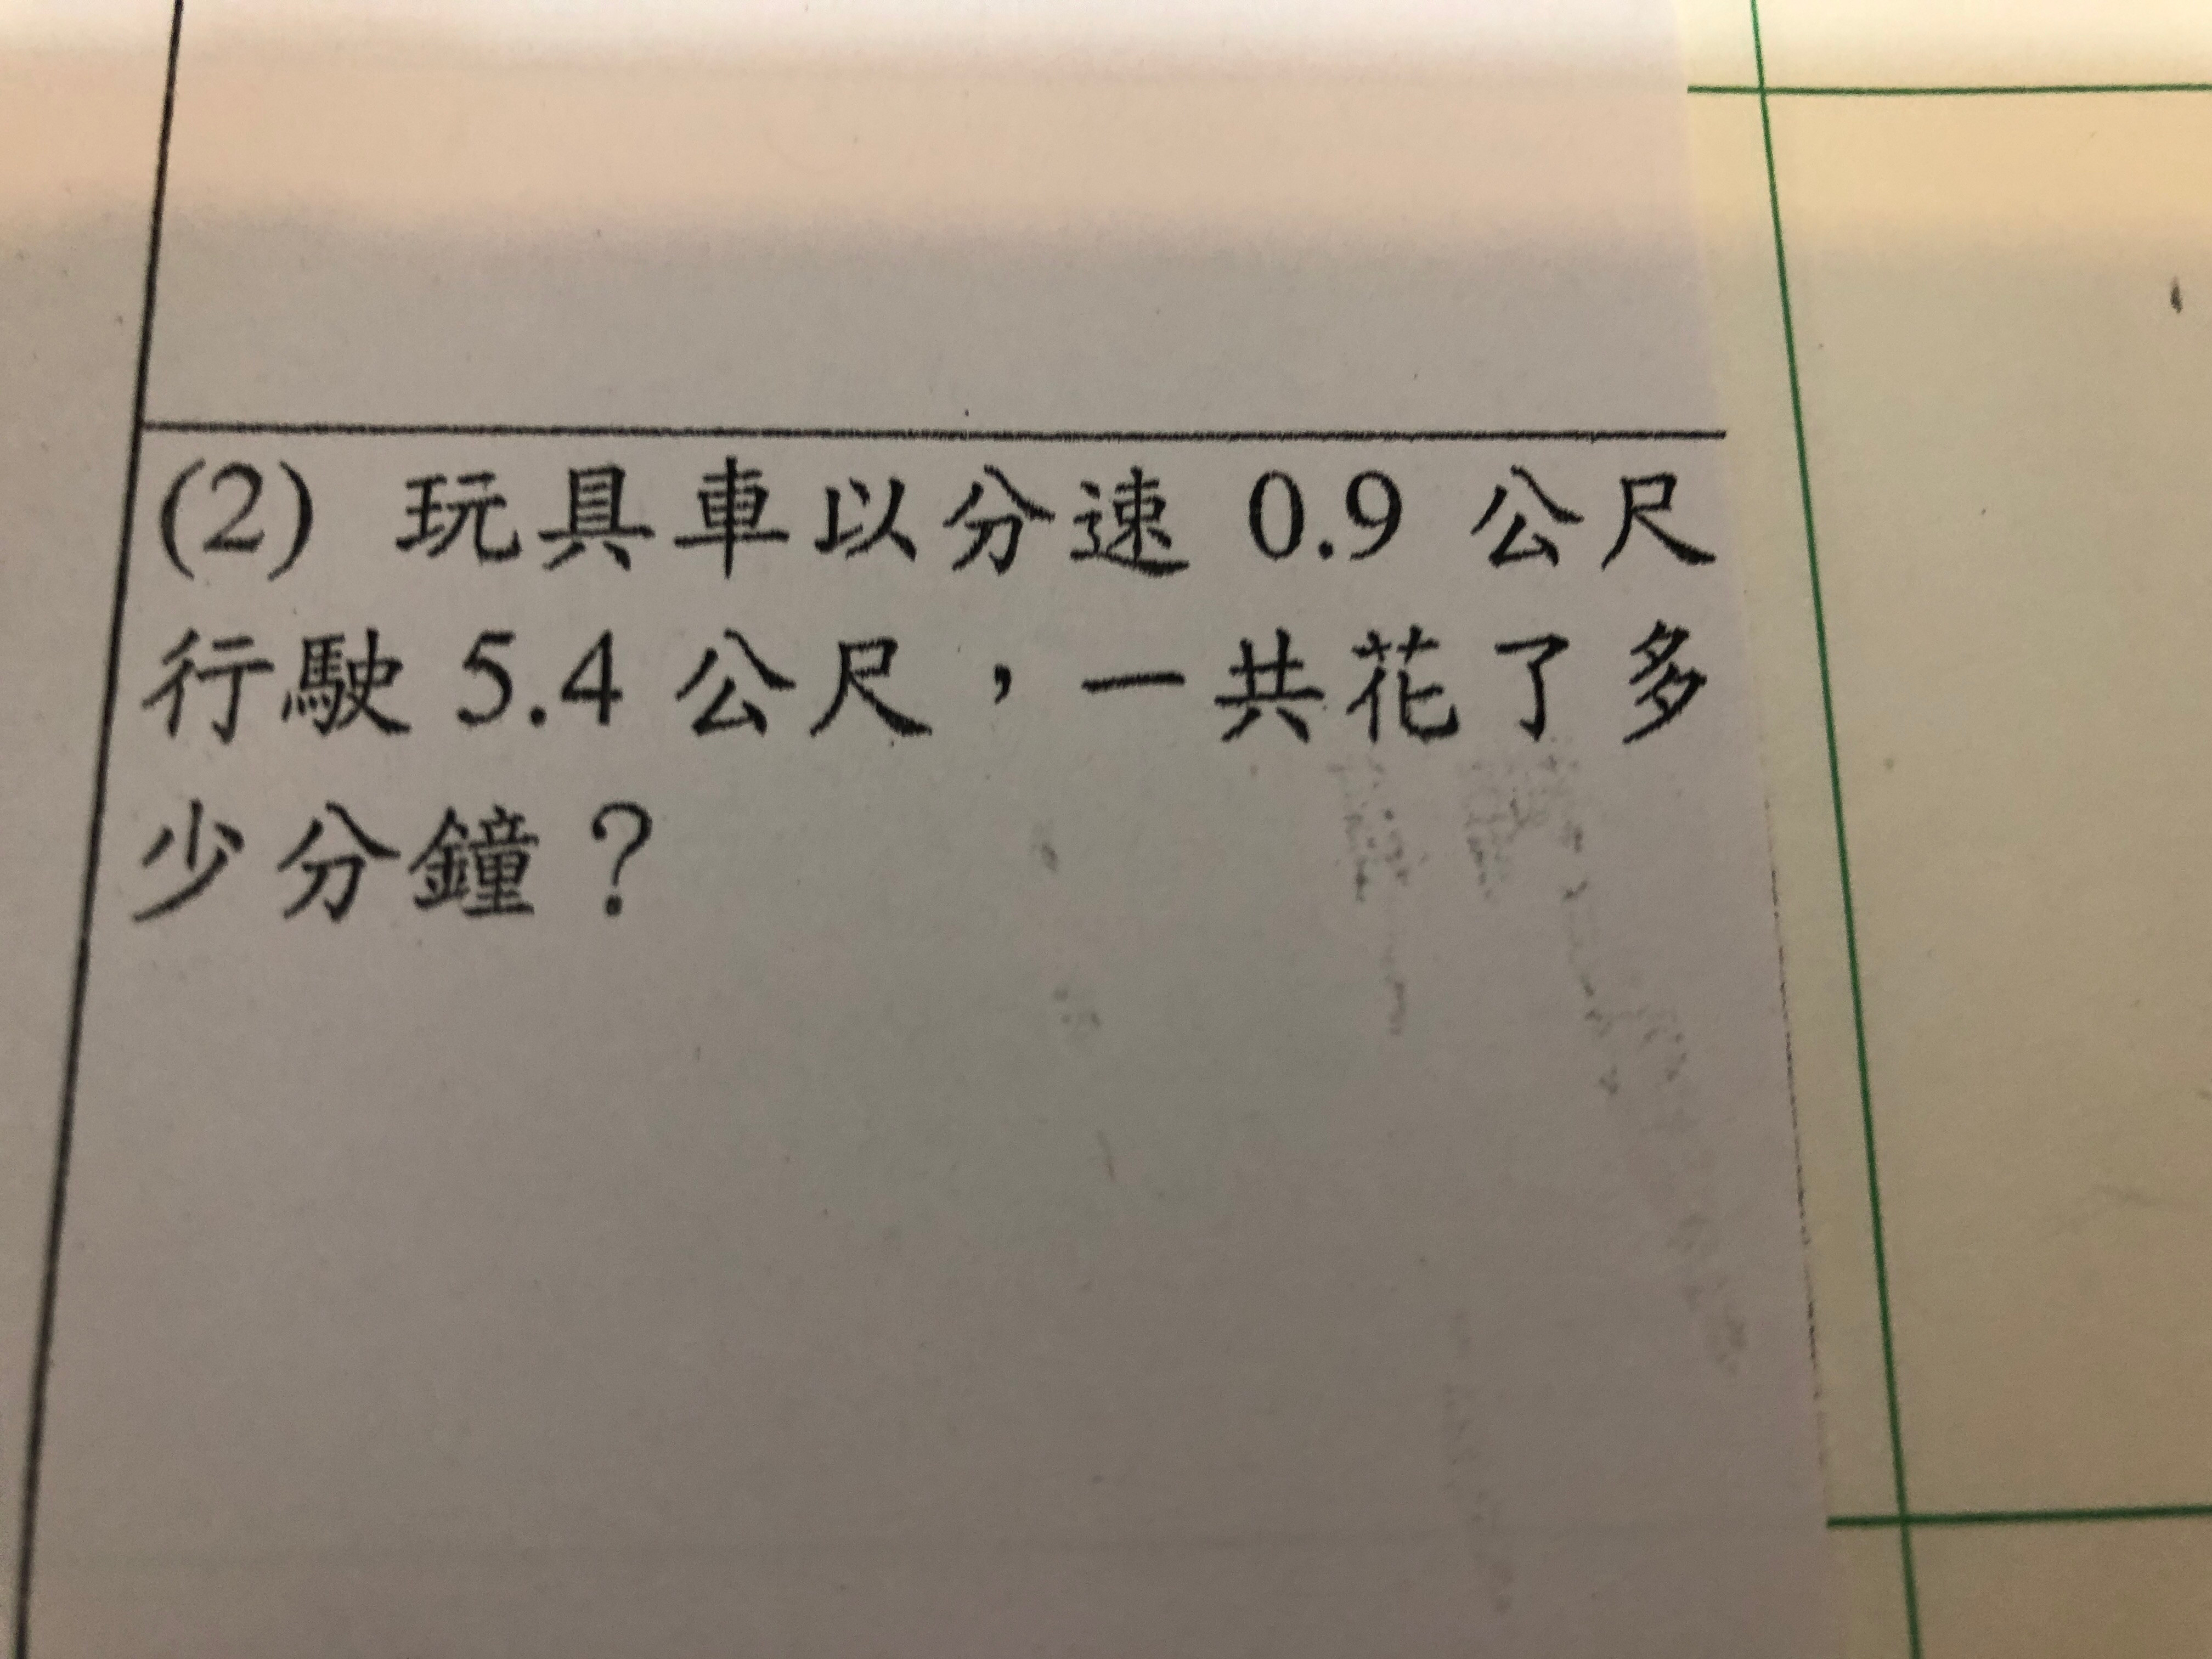 (2) 玩具車以分速 0.9 公尺
行駛 5.4 公尺，一共花了多
少分鐘？